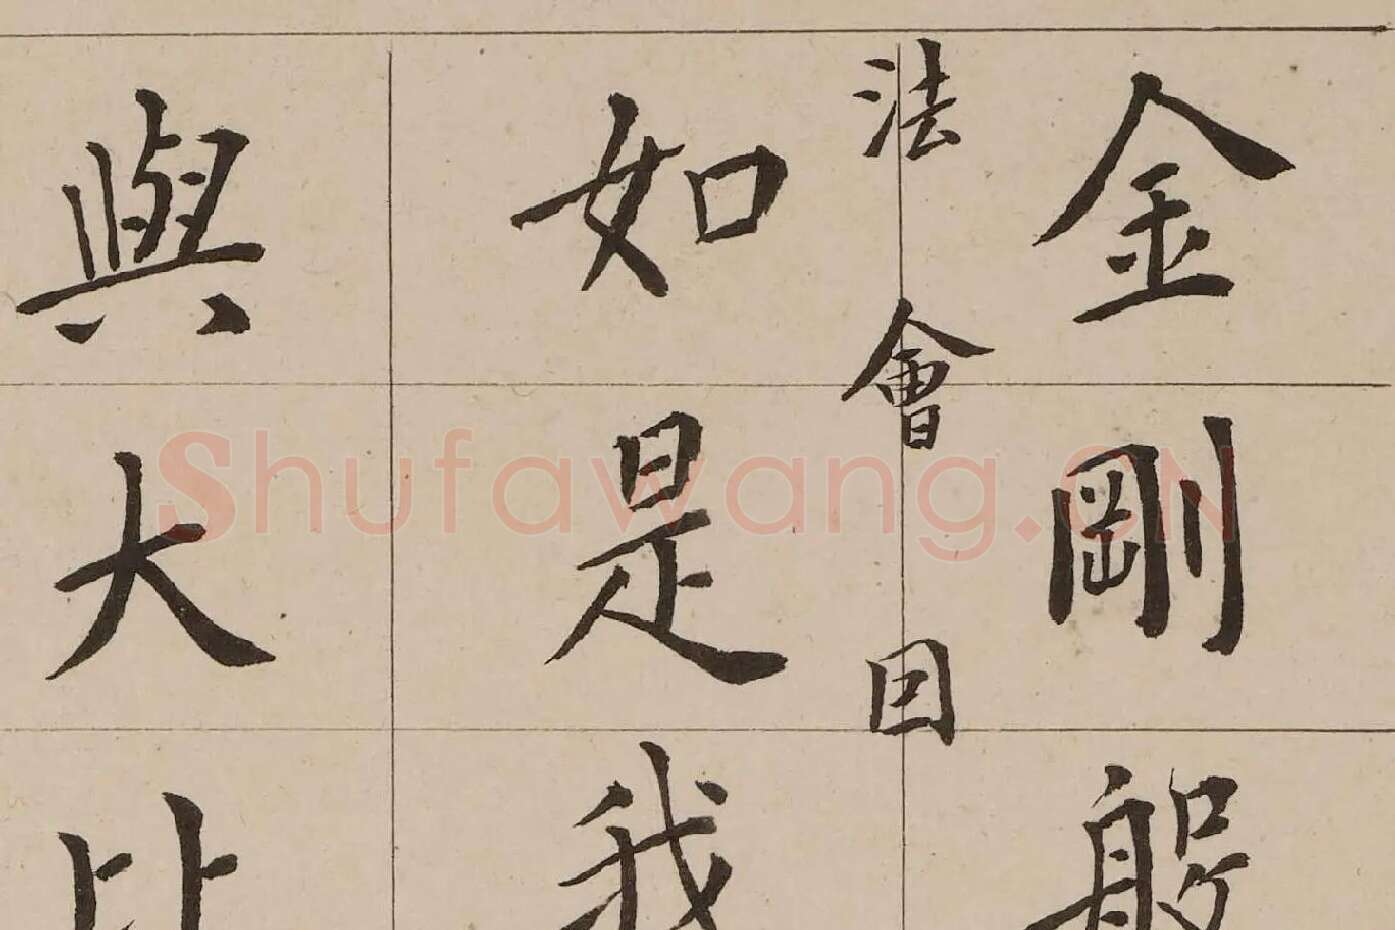 金剛般
法會因
如是我
與大比
Shufawang.CN